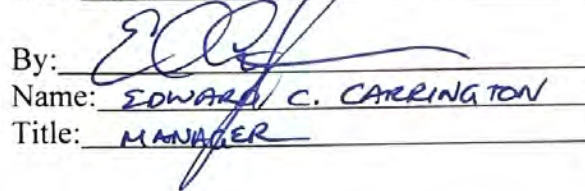 By:
Name: EDWARD C. CARRINGTON
Title: MANAGER